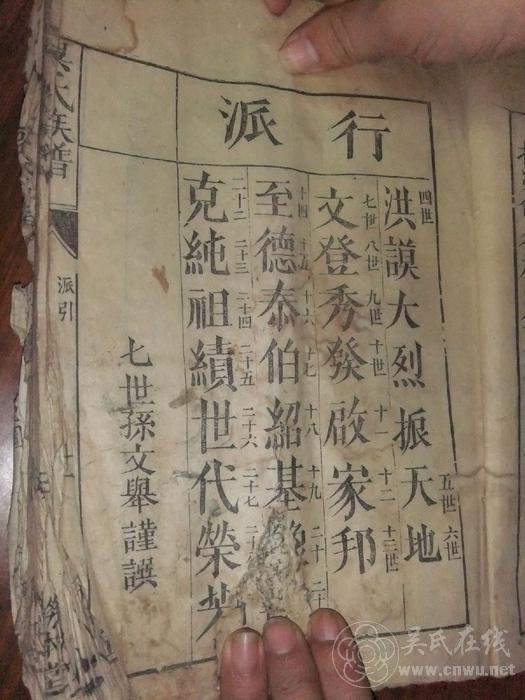 行派
四世
洪謨大烈振天地
五世 六世
七世 八世 九世 十世 十一 十二 十三世
文登秀發啟家邦
十四 十五 十六 十七 十八 十九 二十
至德泰伯紹基
二十二 二十三 二十四 二十五 二十六 二十七
克純祖績世代榮
七世孫文舉謹譔
氏族譜
派引
吴氏在线
www.cnwu.net